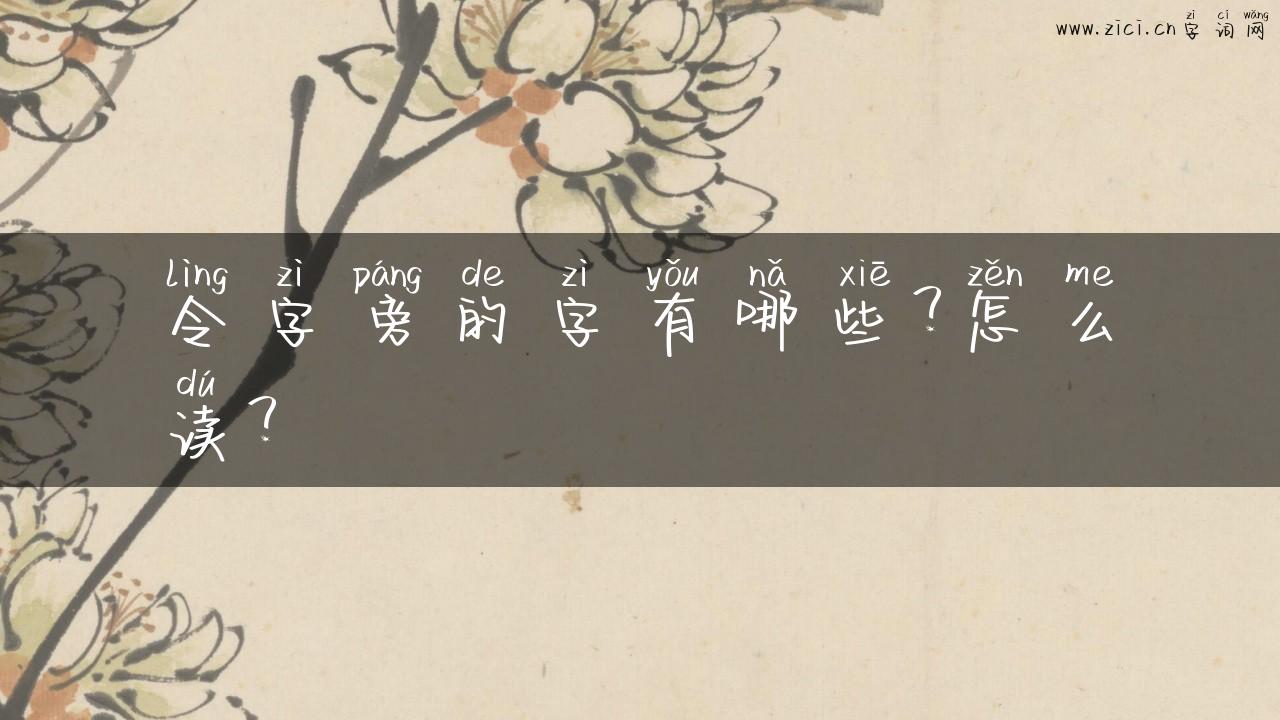 zì cí wǎng
www.zici.cn 字词网
lìng zì páng de zì yǒu nǎ xiē zěn me
令字旁的字有哪些？怎么
dú
读？